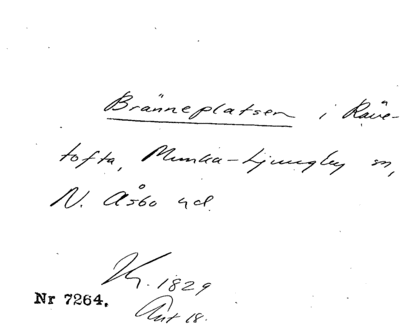 Bränneplatsen i Räve-
tofta, Munka-Ljungby sn,
N. Åsbo hd.
K. 1829
Nr 7264.
Ant 18.